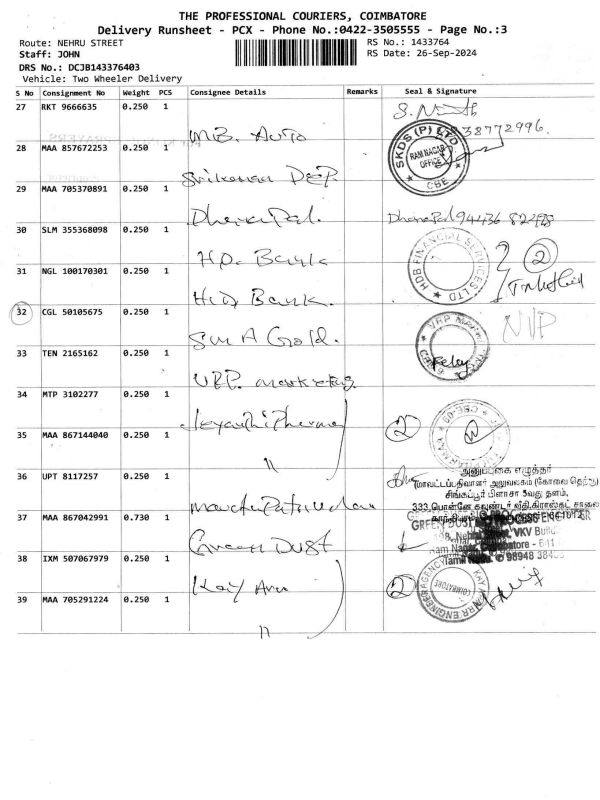 THE PROFESSIONAL COURIERS, COIMBATORE
Delivery Runsheet - PCX - Phone No.:0422-3505555 - Page No.:3
Route: NEHRU STREET
RS No.: 1433764
Staff: JOHN
RS Date: 26-Sep-2024
DRS No.: DCJB143376403
Vehicle: Two Wheeler Delivery
S No Consignment No Weight PCS Consignee Details Remarks Seal & Signature
27 RKT 9666635 0.250 1
M.B. Auto
38772996.
28 MAA 857672253 0.250 1
SKDS (P) LTD
RAM NAGAR OFFICE
CBE
29 MAA 705370891 0.250 1
DhanaPal.
DhanaPal 94436 82298
30 SLM 355368098 0.250 1
HD. Bank
HDB FINANCIAL SERVICES LTD
2
31 NGL 100170301 0.250 1
HD Bank.
32 CGL 50105675 0.250 1
Sun A Gold.
NVP
33 TEN 2165162 0.250 1
VRP. marketing.
34 MTP 3102277 0.250 1
Jeyanthi Pharma
2
35 MAA 867144040 0.250 1
"
36 UPT 8117257 0.250 1
அனுப்புகை எழுத்தர்
மாவட்டப்பதிவாளர் அலுவலகம் (கோவை தெற்கு)
சிங்கப்பூர் பிளாசா 5வது தளம்,
37 MAA 867042991 0.730 1
Green Dust
GREEN DUST
Nehru Street, VKV Build
Ram Nagar, Coimbatore - 641
38 IXM 507067979 0.250 1
Kay Arr
Tamil Nadu.
2
KAY ARR ENGINEERING AGENCY
COIMBATORE
39 MAA 705291224 0.250 1
"